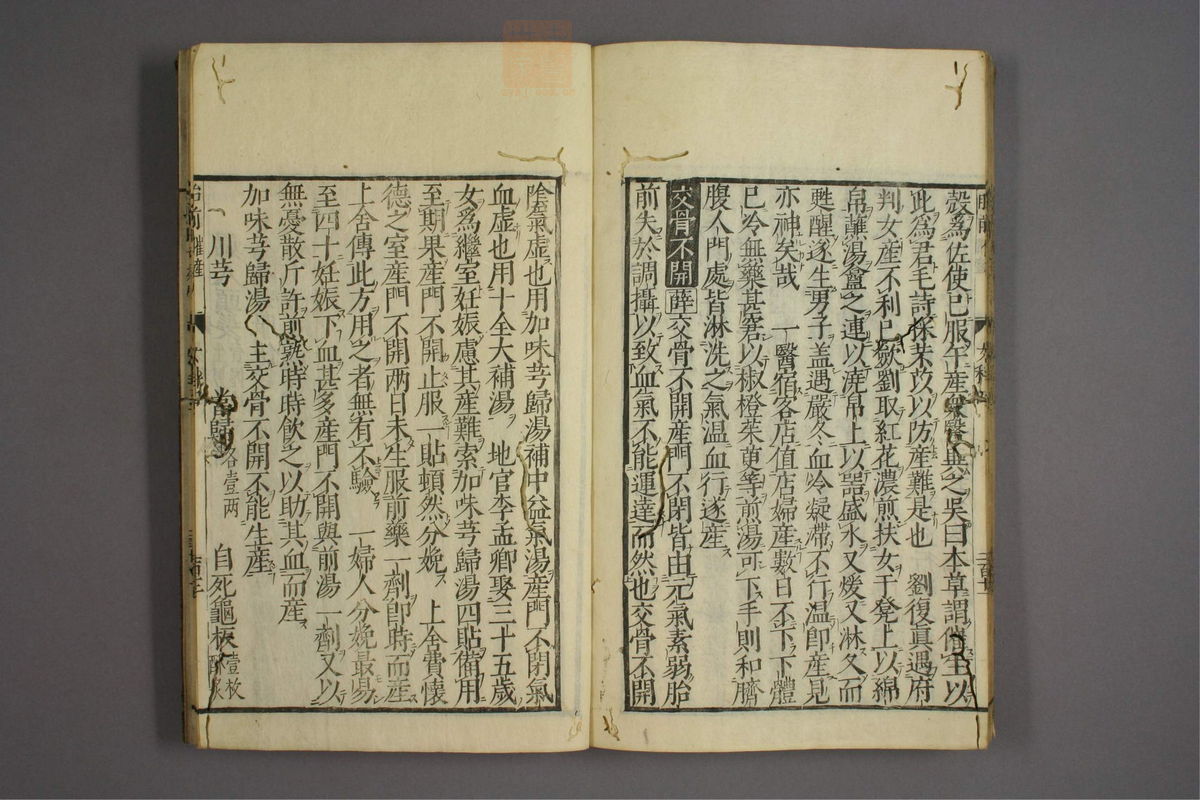 殼爲佐使已服午產衆醫異之吳曰本草謂催生以
此爲君毛詩採芣苡以防產難是也　劉復真遇府
判女產不利已斂劉取紅花濃煎扶女于凳上以綿
帛蘸湯盦之連以澆帛上以器盛水又煖又淋久而
甦醒遂生男子盖遇嚴冬血冷凝滯不行溫即產見
亦神矣哉　一醫宿客店值店婦產數日不下下體
已冷無藥甚窘以椒橙茱萸等煎湯可下手則和臍
腹人門處皆淋洗之氣溫血行遂產
交骨不開 薛 交骨不開產門不閉皆由元氣素弱胎
前失於調攝以致血氣不能運達而然也交骨不開
陰氣虛也用加味芎歸湯補中益氣湯產門不閉氣
血虛也用十全大補湯　地官李孟卿娶三十五歲
女爲繼室妊娠慮其產難索加味芎歸湯四貼備用
至期果產門不開止服一貼頓然分娩　上舍費懷
德之室產門不開兩日未生服前藥一劑即時而產
上舍傳此方用之者無有不驗　一婦人分娩最易
至四十妊娠下血甚多產門不開與前湯一劑又以
無憂散斤許煎熟時時飲之以助其血而產
加味芎歸湯　主交骨不開不能生產
川芎　當歸各壹兩　自死龜板壹枚